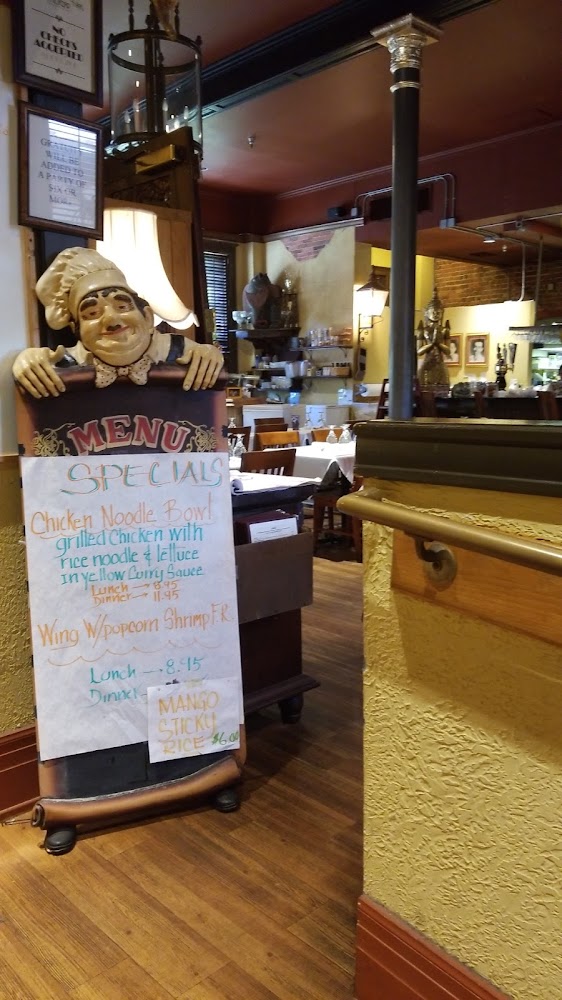 NO
CHECKS
ACCEPTED
GRATUITY
WILL BE
ADDED TO
A PARTY OF
SIX OR
MORE
MENU
SPECIALS
Chicken Noodle Bowl
grilled Chicken with
rice noodle & lettuce
in yellow Curry Sauce
Lunch → 8.95
Dinner → 11.95
Wing W/popcorn Shrimp F.R.
Lunch → 8.95
Dinner
MANGO
STICKY
RICE $6.00